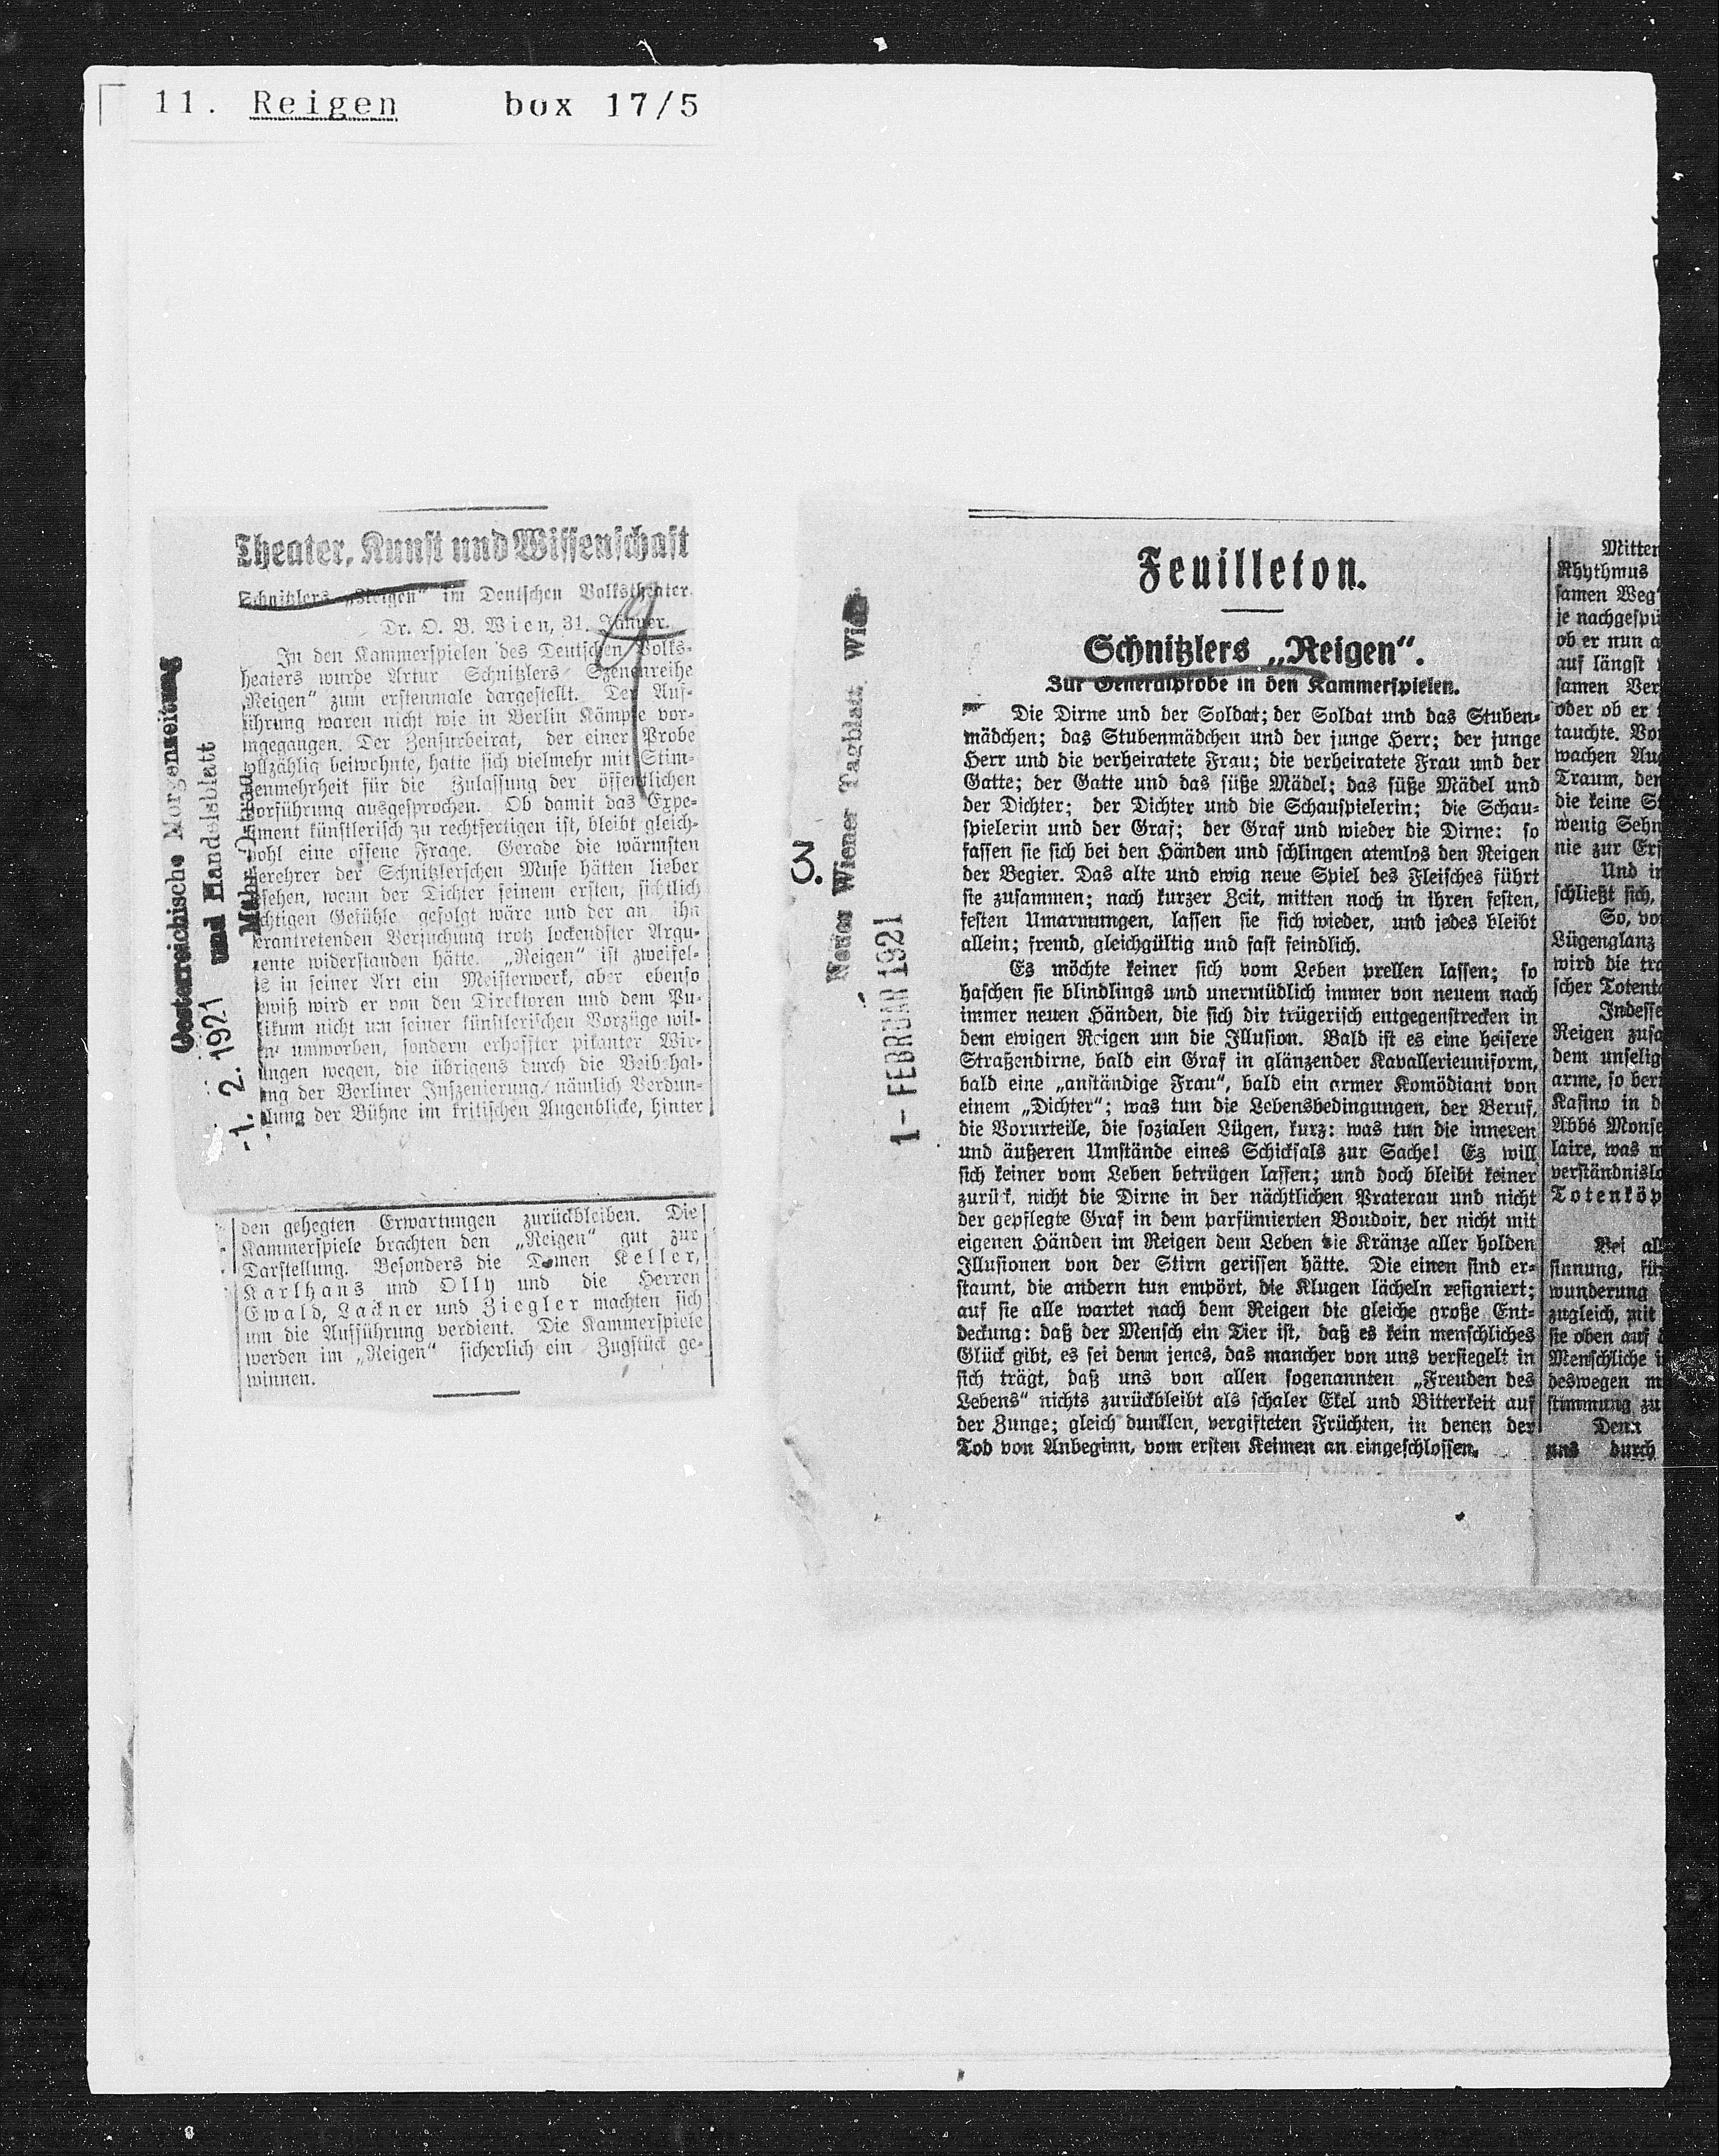 11. Reigen box 17/5
Oesterreichische Morgenzeitung
und Handelsblatt
Mähr.-Ostrau
-1. 2. 1921
Theater, Kunst und Wissenschaft
Schnitzlers „Reigen" im Deutschen Volkstheater.
Dr. O. B. Wien, 31. Jänner.
In den Kammerspielen des Deutschen Volks-
heaters wurde Artur Schnitzlers Szenenreihe
„Reigen" zum erstenmale dargestellt. Der Auf-
ührung waren nicht wie in Berlin Kämpfe vor-
ngegangen. Der Zensurbeirat, der einer Probe
ollzählig beiwohnte, hatte sich vielmehr mit Stim-
enmehrheit für die Zulassung der öffentlichen
orführung ausgesprochen. Ob damit das Expe-
iment künstlerisch zu rechtfertigen ist, bleibt gleich-
ohl eine offene Frage. Gerade die wärmsten
erehrer der Schnitzlerschen Muse hätten lieber
esehen, wenn der Dichter seinem ersten, sichtlich
chtigen Gefühle gefolgt wäre und der an ihn
erantretenden Versuchung trotz lockendster Argu-
ente widerstanden hätte. „Reigen" ist zweifel-
s in seiner Art ein Meisterwerk, aber ebenso
ewiß wird er von den Direktoren und dem Pu-
likum nicht um seiner künstlerischen Vorzüge wil-
en umworben, sondern erhoffter pikanter Wir-
ungen wegen, die übrigens durch die Beibehal-
ng der Berliner Inszenierung, nämlich Verdun-
lung der Bühne im kritischen Augenblicke, hinter
den gehegten Erwartungen zurückbleiben. Die
Kammerspiele brachten den „Reigen" gut zur
Darstellung. Besonders die Damen Keller,
Karlhans und Olly und die Herren
Ewald, Lackner und Ziegler machten sich
um die Aufführung verdient. Die Kammerspiele
werden im „Reigen" sicherlich ein Zugstück ge-
winnen.
3.
Neues Wiener Tagblatt, Wien
1- FEBRUAR 1921
Feuilleton.
Schnitzlers „Reigen".
Zur Generalprobe in den Kammerspielen.
Die Dirne und der Soldat; der Soldat und das Stuben-
mädchen; das Stubenmädchen und der junge Herr; der junge
Herr und die verheiratete Frau; die verheiratete Frau und der
Gatte; der Gatte und das süße Mädel; das süße Mädel und
der Dichter; der Dichter und die Schauspielerin; die Schau-
spielerin und der Graf; der Graf und wieder die Dirne: so
fassen sie sich bei den Händen und schlingen atemlos den Reigen
der Begier. Das alte und ewig neue Spiel des Fleisches führt
sie zusammen; nach kurzer Zeit, mitten noch in ihren festen,
festen Umarmungen, lassen sie sich wieder, und jedes bleibt
allein; fremd, gleichgültig und fast feindlich.
Es möchte keiner sich vom Leben prellen lassen; so
haschen sie blindlings und unermüdlich immer von neuem nach
immer neuen Händen, die sich dir trügerisch entgegenstrecken in
dem ewigen Reigen um die Illusion. Bald ist es eine heisere
Straßendirne, bald ein Graf in glänzender Kavallerieuniform,
bald eine „anständige Frau", bald ein armer Komödiant von
einem „Dichter"; was tun die Lebensbedingungen, der Beruf,
die Vorurteile, die sozialen Lügen, kurz: was tun die inneren
und äußeren Umstände eines Schicksals zur Sache! Es will
sich keiner vom Leben betrügen lassen; und doch bleibt keiner
zurück, nicht die Dirne in der nächtlichen Praterau und nicht
der gepflegte Graf in dem parfümierten Boudoir, der nicht mit
eigenen Händen im Reigen dem Leben die Kränze aller holden
Illusionen von der Stirn gerissen hätte. Die einen sind er-
staunt, die andern tun empört, die Klugen lächeln resigniert;
auf sie alle wartet nach dem Reigen die gleiche große Ent-
deckung: daß der Mensch ein Tier ist, daß es kein menschliches
Glück gibt, es sei denn jenes, das mancher von uns versiegelt in
sich trägt, daß uns von allen sogenannten „Freuden des
Lebens" nichts zurückbleibt als schaler Ekel und Bitterkeit auf
der Zunge; gleich dunklen, vergifteten Früchten, in denen der
Tod von Anbeginn, vom ersten Keimen an eingeschlossen.
Mitten
Rhythmus
samen Weg
je nachgespü
ob er nun a
auf längst
samen Ver
oder ob er
tauchte. Vo
wachen Aug
Traum, den
die keine S
wenig Sehn
nie zur Erf
Und in
schließt sich,
So, vo
Lügenglanz
wird die tra
scher Totent
Indesse
Reigen zusa
dem unselig
arme, so ber
Kasino in d
Abbé Monse
laire, was m
verständnislo
Totenköp
Bei all
sinnung, für
wunderung
zugleich, mit
sie oben auf
Menschliche i
deswegen m
stimmung zu
Denn
uns durch